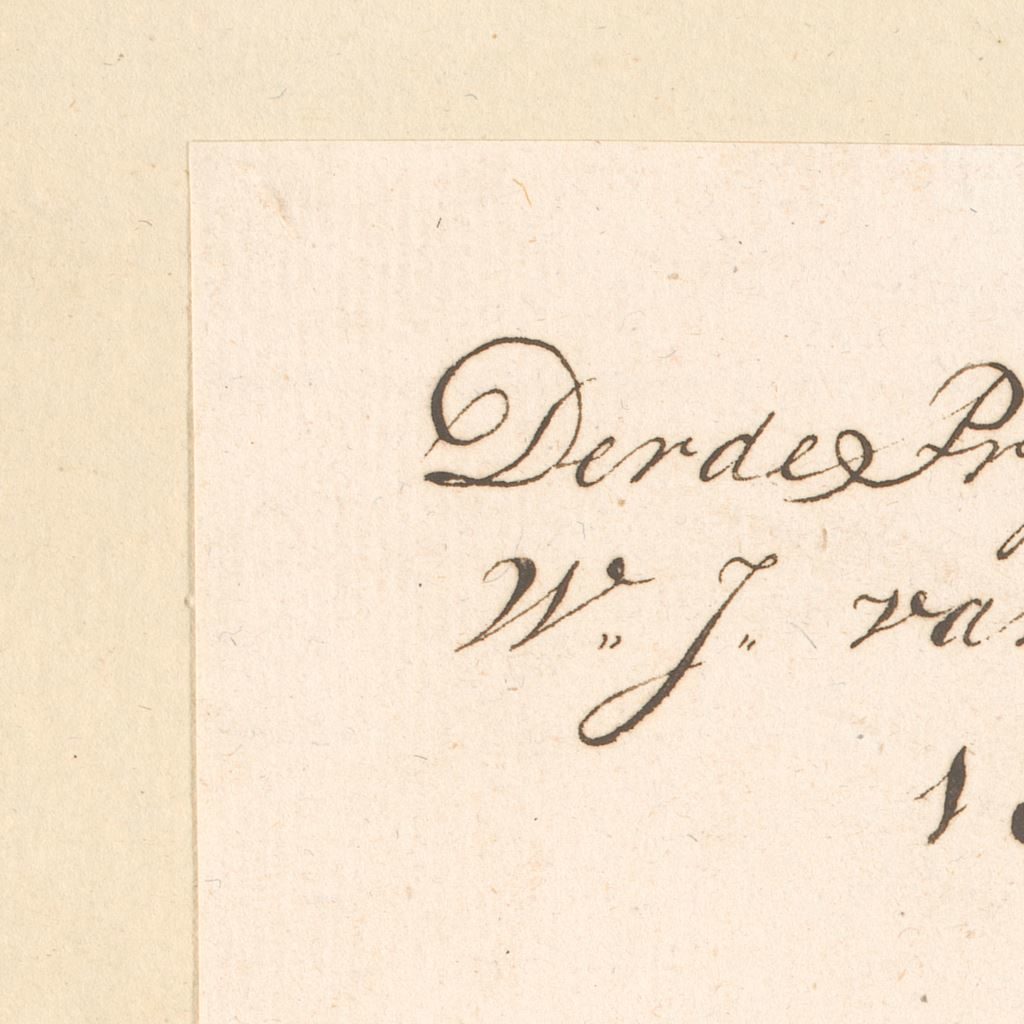 Derde Pr
W„ J„ van
1